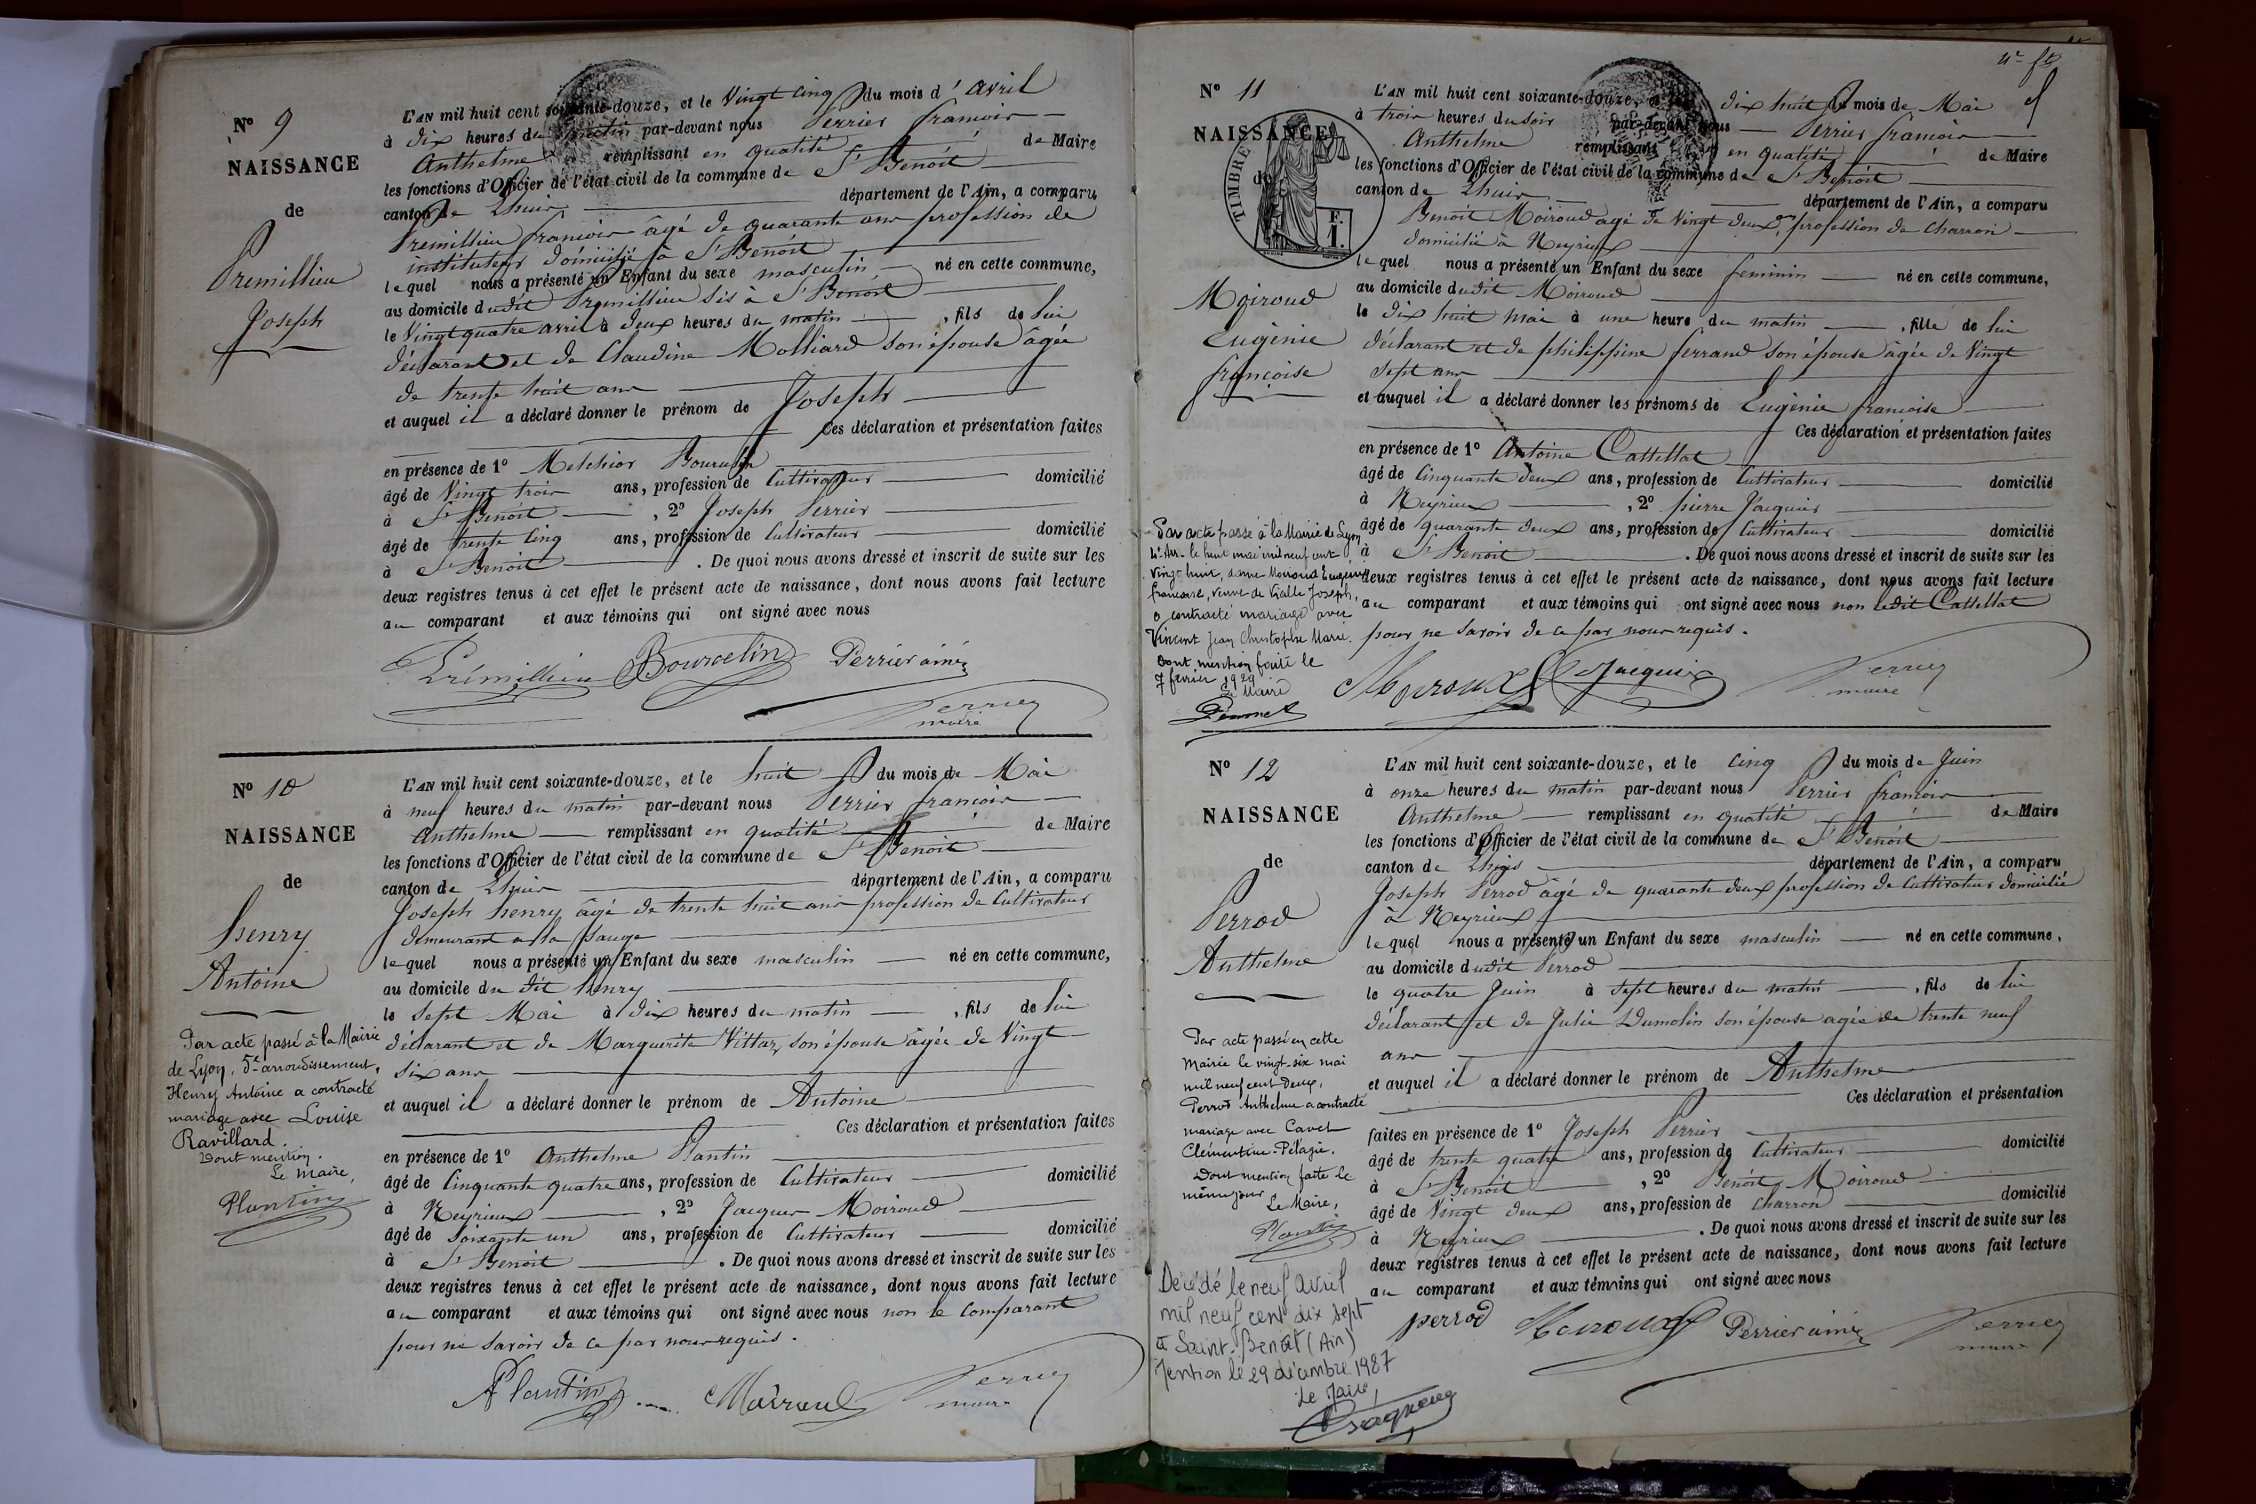 Nº 9
NAISSANCE
de
Premillieu
Joseph
L'AN mil huit cent soixante-douze, et le Vingt Cinq du mois d'avril
à dix heures du matin par-devant nous Perrier françois
Anthelme remplissant en qualité de Maire
les fonctions d'Officier de l'état civil de la commune de St Benoît
canton de Lhuis département de l'Ain, a comparu
Premillieu françois âgé de quarante ans profession de
instituteur domicilié à St Benoît
lequel nous a présenté un Enfant du sexe masculin né en cette commune,
au domicile dudit Premillieu sis à St Benoît
le Vingt quatre avril à deux heures du matin , fils de lui
déclarant et de Claudine Molliard son épouse âgée
de trente huit ans
et auquel il a déclaré donner le prénom de Joseph
Ces déclaration et présentation faites
en présence de 1º Melchior Bourcelin
âgé de Vingt trois ans, profession de Cultivateur domicilié
à St Benoît , 2º Joseph Perrier
âgé de trente Cinq ans, profession de Cultivateur domicilié
à St Benoît . De quoi nous avons dressé et inscrit de suite sur les
deux registres tenus à cet effet le présent acte de naissance, dont nous avons fait lecture
au comparant et aux témoins qui ont signé avec nous
Prémillieu Bourcelin Perrier ainé
Perrier
maire
Nº 10
NAISSANCE
de
henry
Antoine
Par acte passé à la Mairie
de Lyon, 5e arrondissement,
Henry Antoine a contracté
mariage avec Louise
Ravillard.
Dont mention.
Le Maire,
Plantin
L'AN mil huit cent soixante-douze, et le huit du mois de Mai
à neuf heures du matin par-devant nous Perrier françois
Anthelme remplissant en qualité de Maire
les fonctions d'Officier de l'état civil de la commune de St Benoît
canton de Lhuis département de l'Ain, a comparu
Joseph henry âgé de trente huit ans profession de Cultivateur
demeurant à la Sauge
lequel nous a présenté un Enfant du sexe masculin né en cette commune,
au domicile du dit henry
le Sept Mai à dix heures du matin , fils de lui
déclarant et de Marguerite Vittaz son épouse âgée de Vingt
six ans
et auquel il a déclaré donner le prénom de Antoine
Ces déclaration et présentation faites
en présence de 1º Anthelme Plantin
âgé de Cinquante quatre ans, profession de Cultivateur domicilié
à Neyrieux , 2º Jacques Moiroud
âgé de Soixante un ans, profession de Cultivateur domicilié
à St Benoît . De quoi nous avons dressé et inscrit de suite sur les
deux registres tenus à cet effet le présent acte de naissance, dont nous avons fait lecture
au comparant et aux témoins qui ont signé avec nous non le Comparant
pour ne savoir de ce par nous requis.
Plantin Moiroud Perrier
maire
4e ft
Nº 11
NAISSANCE
de
TIMBRE
Moiroud
Eugénie
françoise
Par acte passé à la Mairie de Lyon
4e Arr. le huit mai mil neuf cent
vingt huit, dame Moiroud Eugénie
françoise, veuve de Vialle Joseph,
a contracté mariage avec
Vincent Jean Christophe Marie.
Dont mention faite le
7 février 1929
Le Maire
L'AN mil huit cent soixante-douze, et le dix huit du mois de Mai
à trois heures du soir par-devant nous Perrier françois
Anthelme remplissant en qualité de Maire
les fonctions d'Officier de l'état civil de la commune de St Benoît
canton de Lhuis département de l'Ain, a comparu
Benoît Moiroud agé de Vingt deux ans profession de Charron
domicilié à Neyrieux
lequel nous a présenté un Enfant du sexe feminin né en cette commune,
au domicile dudit Moiroud
le dix huit Mai à une heure du matin , fille de lui
déclarant et de philippine ferrand son épouse âgée de Vingt
sept ans
et auquel il a déclaré donner les prénoms de Eugénie françoise
Ces déclaration et présentation faites
en présence de 1º Antoine Cattellat
âgé de Cinquante deux ans, profession de Cultivateur domicilié
à Neyrieux , 2º pierre Jacquier
âgé de quarante deux ans, profession de Cultivateur domicilié
à St Benoît . De quoi nous avons dressé et inscrit de suite sur les
deux registres tenus à cet effet le présent acte de naissance, dont nous avons fait lecture
au comparant et aux témoins qui ont signé avec nous non ledit Cattellat
pour ne savoir de ce par nous requis.
Moiroud Jacquier Perrier
maire
Nº 12
NAISSANCE
de
Perrod
Anthelme
Par acte passé en cette
Mairie le vingt-six mai
mil neuf cent deux,
Perrod Anthelme a contracté
mariage avec Cavet
Clémentine-Pélagie.
Dont mention faite le
même jour
Le Maire,
Plantin
Décédé le neuf avril
mil neuf cent dix sept
à Saint-Benoît (Ain)
Mention le 29 décembre 1987
Le Maire,
L'AN mil huit cent soixante-douze, et le Cinq du mois de Juin
à onze heures du matin par-devant nous Perrier françois
Anthelme remplissant en qualité de Maire
les fonctions d'Officier de l'état civil de la commune de St Benoît
canton de Lhuis département de l'Ain, a comparu
Joseph Perrod âgé de quarante deux profession de Cultivateur domicilié
à Neyrieux
lequel nous a présenté un Enfant du sexe masculin né en cette commune,
au domicile dudit Perrod
le quatre Juin à sept heures du matin , fils de lui
déclarant et de Julie Dumolin son épouse agée de trente neuf
ans
et auquel il a déclaré donner le prénom de Anthelme
Ces déclaration et présentation
faites en présence de 1º Joseph Perrier
âgé de trente quatre ans, profession de Cultivateur domicilié
à St Benoît , 2º Benoît Moiroud
âgé de Vingt deux ans, profession de Charron domicilié
à Neyrieux . De quoi nous avons dressé et inscrit de suite sur les
deux registres tenus à cet effet le présent acte de naissance, dont nous avons fait lecture
au comparant et aux témoins qui ont signé avec nous
perrod Moiroud Perrier ainé Perrier
maire